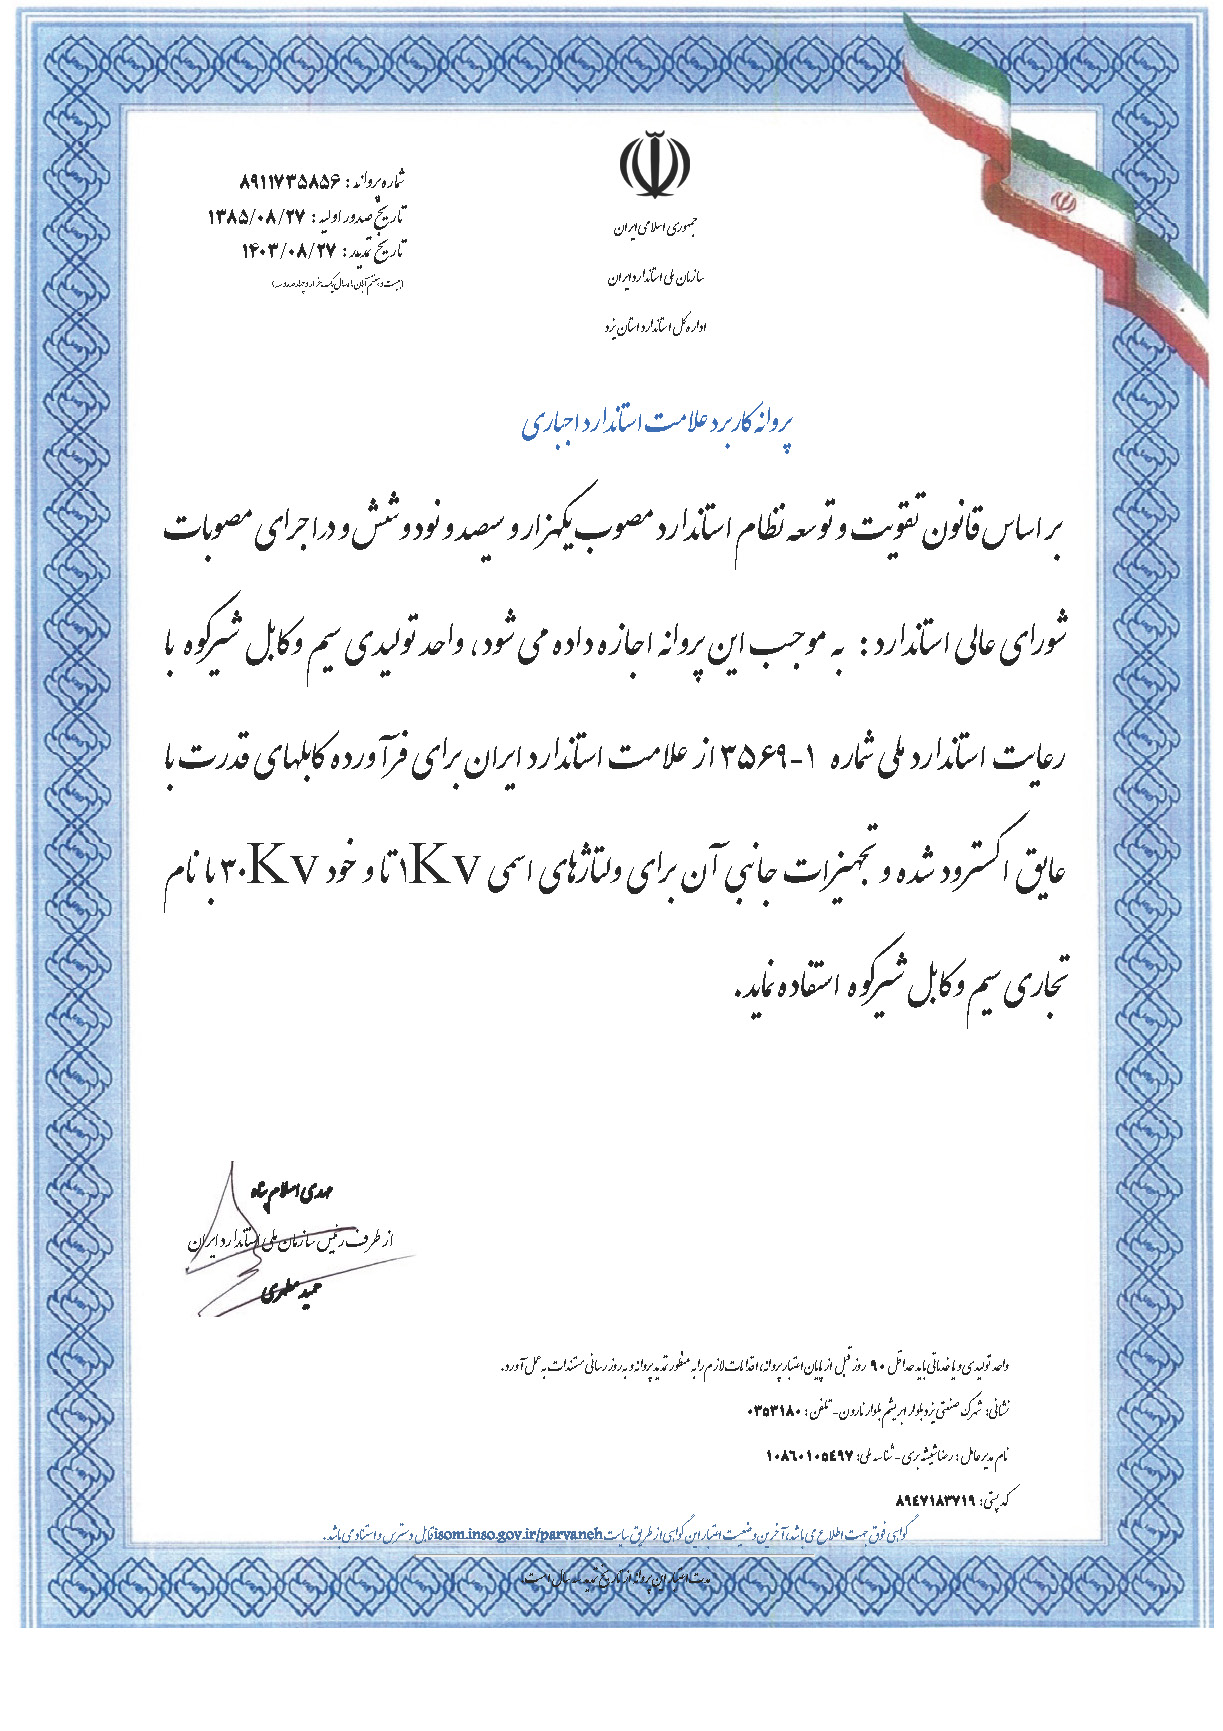 جمهوری اسلامی ایران
سازمان ملی استاندارد ایران
اداره کل استاندارد استان یزد
شماره پروانه : ۸۹۱۱۷۳۵۸۵۶
تاریخ صدور اولیه : ۱۳۸۵/۰۸/۲۷
تاریخ تمدید : ۱۴۰۳/۰۸/۲۷
(بیست و هفتم آبان ماه سال یک هزار و چهارصد و سه)
پروانه کاربرد علامت استاندارد اجباری
بر اساس قانون تقویت و توسعه نظام استاندارد مصوب یکهزار و سیصد و نود و شش و در اجرای مصوبات
شورای عالی استاندارد : به موجب این پروانه اجازه داده می شود، واحد تولیدی سیم و کابل شیرکوه با
رعایت استاندارد ملی شماره ۱-۳۵۶۹ از علامت استاندارد ایران برای فرآورده کابلهای قدرت با
عایق اکسترود شده و تجهیزات جانبی آن برای ولتاژهای اسمی ۱Kv تا و خود ۳۰Kv با نام
تجاری سیم و کابل شیرکوه استفاده نماید.
مهدی اسلام پناه
از طرف رئیس سازمان ملی استاندارد ایران
حمید مطهری
واحد تولیدی و یا خدماتی باید حداقل ۹۰ روز قبل از پایان اعتبار پروانه، اقدامات لازم را به منظور تمدید پروانه و به روز رسانی مستندات به عمل آورد.
نشانی: شهرک صنعتی یزد بلوار ابریشم بلوار نارون - تلفن : ۰۳۵۳۱۸۰
نام مدیر عامل : رضا شیشه بری - شناسه ملی: ۱۰۸۶۰۱۰۵٤۹۷
کد پستی: ۸۹٤۷۱۸۳۷۱۹
گواهی فوق جهت اطلاع می باشد، آخرین وضعیت اعتبار این گواهی از طریق سایت isom.inso.gov.ir/parvaneh قابل دسترس و استناد می باشد.
مدت اعتبار این پروانه از تاریخ تمدید سه سال است